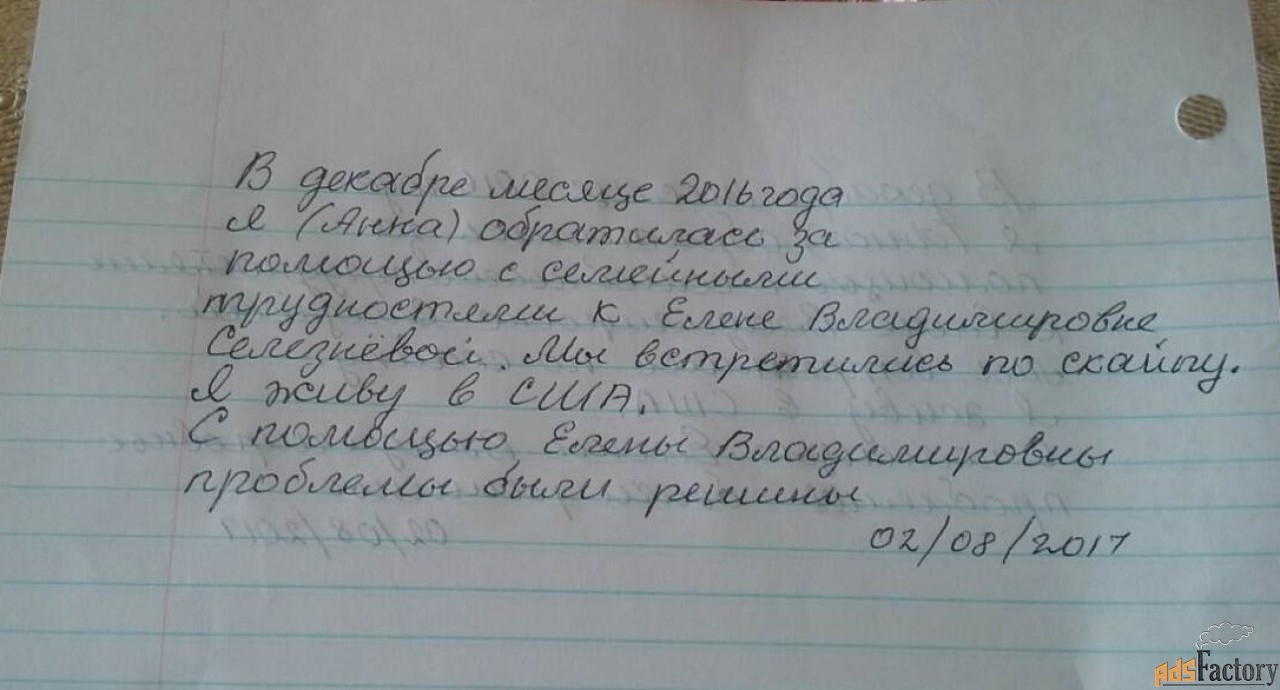 В декабре месяце 2016 года
я (Анна) обратилась за
помощью с семейными
трудностями к Елене Владимировне
Селезнёвой. Мы встретились по скайпу.
Я живу в США.
С помощью Елены Владимировны
проблемы были решины
02/08/2017
AdsFactory